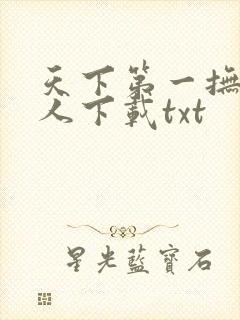 天下第一撫
人下載txt
星光藍寶石